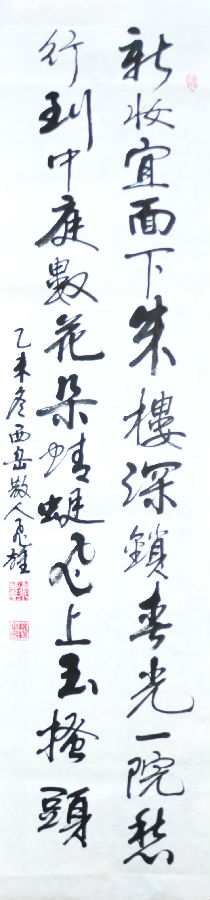 新妝宜面下朱樓深鎖春光一院愁
行到中庭數花朵蜻蜓飛上玉搔頭
乙未冬西岳散人飛雄